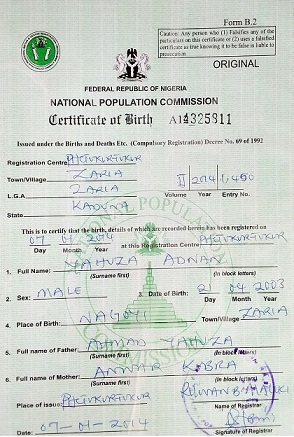 Form B.2
Caution: Any person who (1) Falsifies any of the
particulars on this certificate or (2) uses a falsified
certificate as true knowing it to be false is liable to
prosecution
ORIGINAL
FEDERAL REPUBLIC OF NIGERIA
NATIONAL POPULATION COMMISSION
Certificate of Birth A14325911
Issued under the Births and Deaths Etc. (Compulsory Registration) Decree No. 69 of 1992
Registration Centre
Town/Village ZARIA II 2014 1,450
L.G.A ZARIA Volume Year Entry No.
State KADUNA
This is to certify that the birth, details of which are recorded herein has been registered on
07 01 2014 at this Registration Centre
Day Month Year
1. Full Name: YAHUZA ADNAN
(Surname first) (In block letters)
2. Sex: MALE 3. Date of Birth: 21 04 2003
Day Month Year
4. Place of Birth: Town/Village ZARIA
5. Full name of Father: AHMAD YAHUZA
(Surname first) (In block letters)
6. Full name of Mother: ANWAR KUBRA
(Surname first) (In block letters)
Place of issue:
Name of Registrar
Date: 07-01-2014
Signature of Registrar